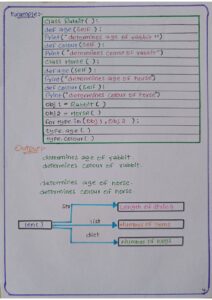 Example:
class Rabbit():
def age(self):
print("determines age of rabbit")
def colour(self):
print("determines colour of rabbit")
class Horse():
def age(self):
print("determines age of horse")
def colour(self):
print("determines colour of horse")
obj1 = Rabbit()
obj2 = Horse()
for type in (obj1, obj2):
type.age()
type.colour()
Output:
determines age of rabbit
determines colour of rabbit
determines age of horse
determines colour of horse
len()
str
Length of string
list
Number of items
dict
Number of keys